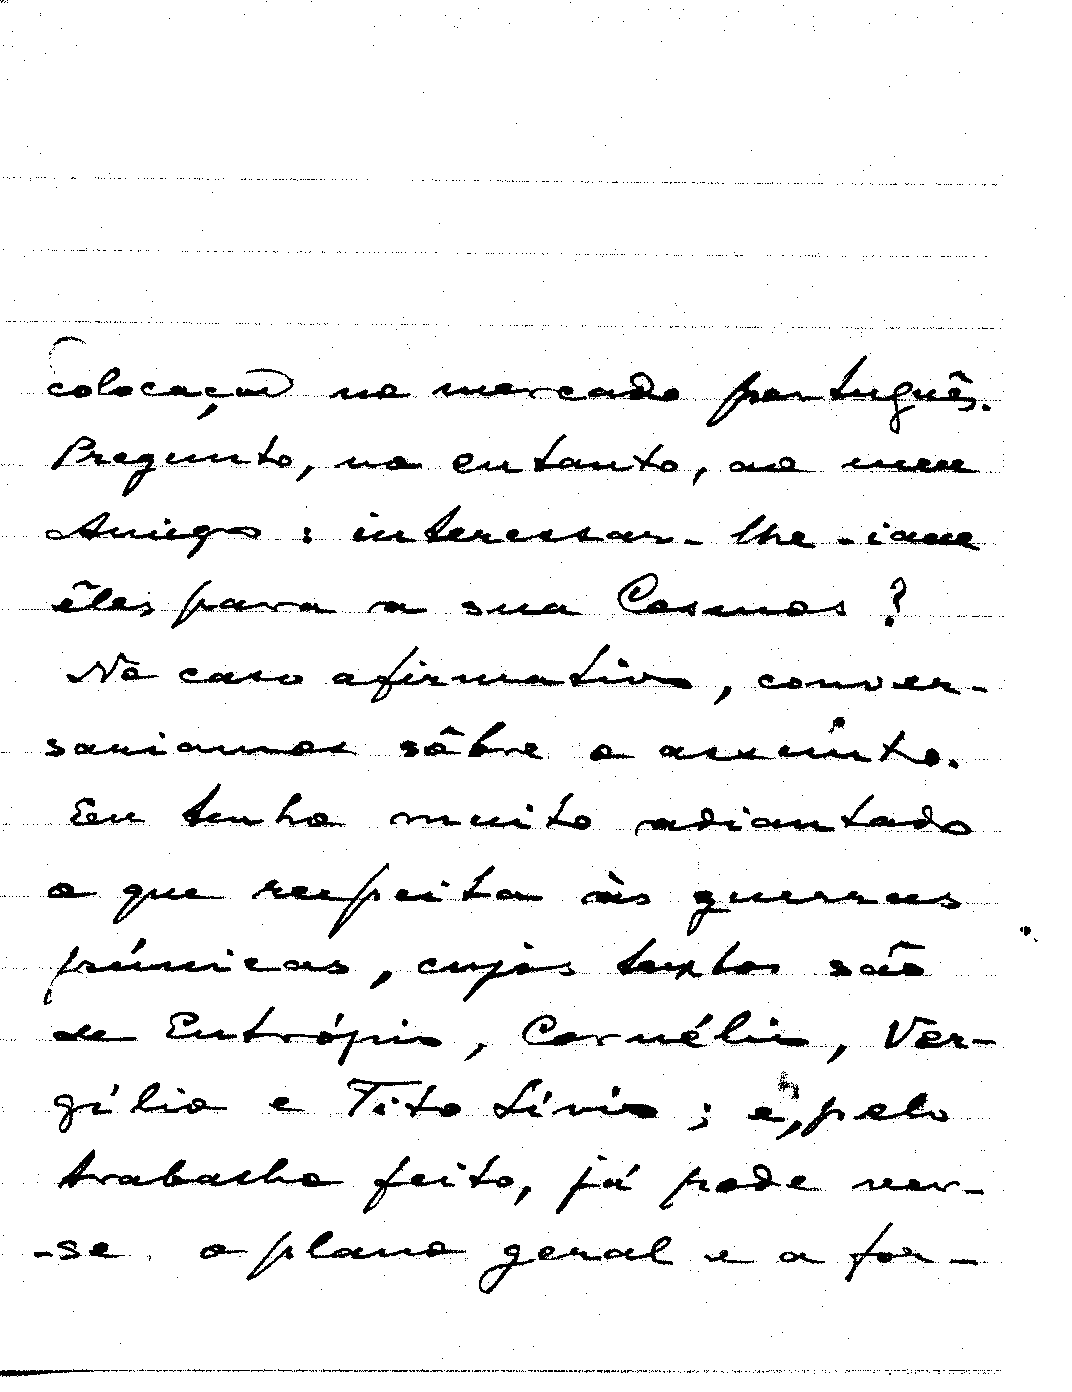 colocação no mercado português.
Pregunto, no entanto, ao meu
Amigo: interessar-lhe-iam
êles para a sua Cosmos?
No caso afirmativo, conver-
saríamos sôbre o assunto.
Eu tenho muito adiantado
o que respeita às guerras
púnicas, cujos textos são
de Eutrópio, Cornélio, Ver-
gílio e Tito Lívio; e, pelo
trabalho feito, já pode ver-
-se o plano geral e a for-